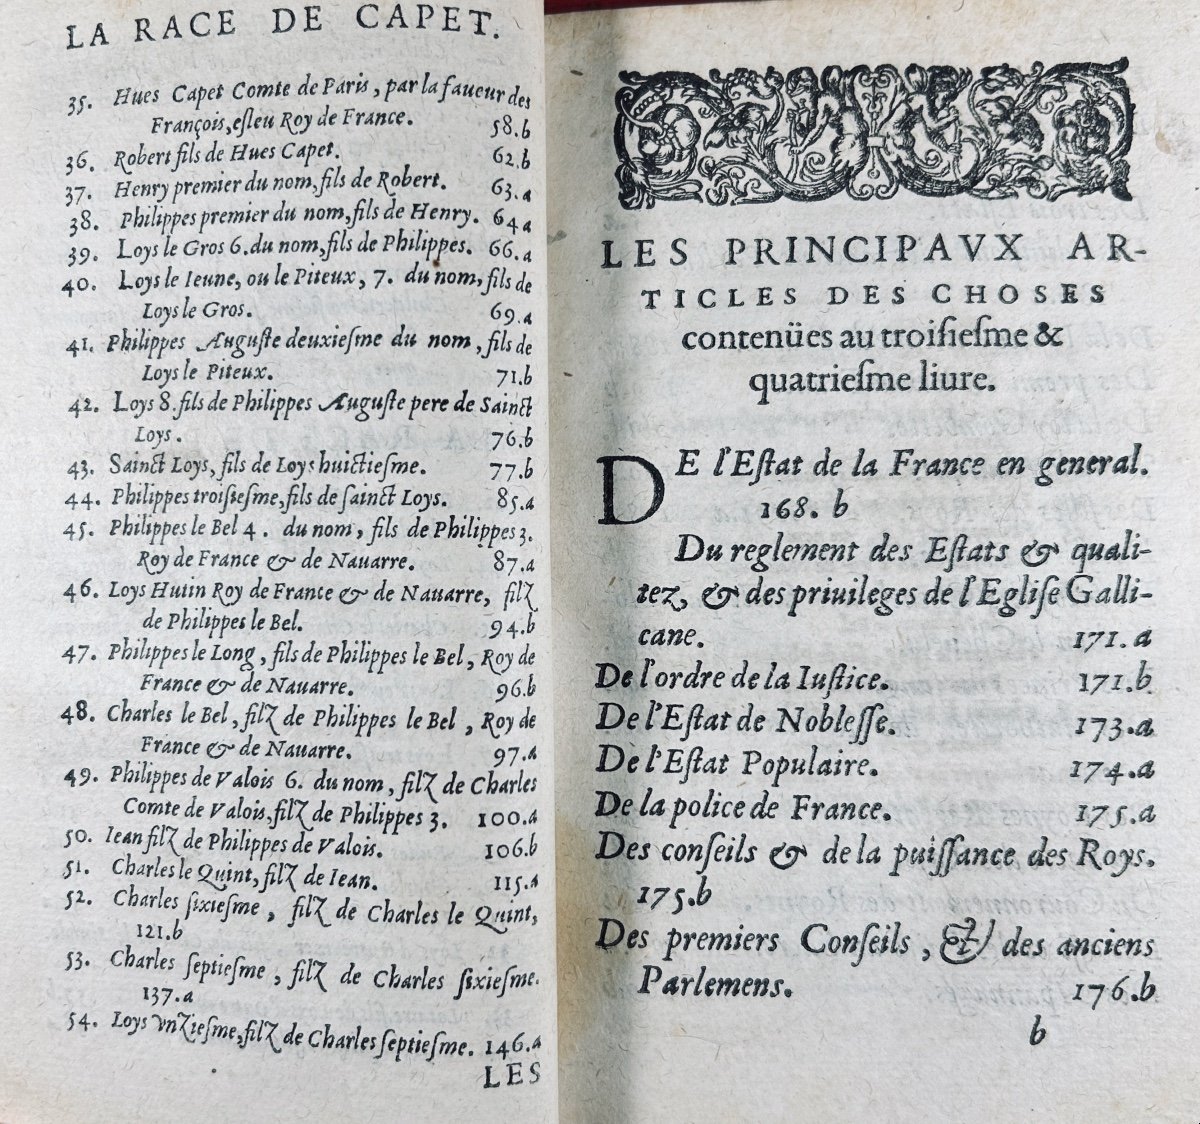 LA RACE DE CAPET.
35. Hues Capet Comte de Paris, par la faueur des
François, esleu Roy de France. 58.b
36. Robert fils de Hues Capet. 62.b
37. Henry premier du nom, fils de Robert. 63.a
38. Philippes premier du nom, fils de Henry. 64a
39. Loys le Gros 6. du nom, fils de Philippes. 66.a
40. Loys le Ieune, ou le Piteux, 7. du nom, fils de
Loys le Gros. 69.a
41. Philippes Auguste deuxiesme du nom, fils de
Loys le Piteux. 71.b
42. Loys 8. fils de Philippes Auguste pere de Sainct
Loys. 76.b
43. Sainct Loys, fils de Loys huictiesme. 77.b
44. Philippes troisiesme, fils de sainct Loys. 85.a
45. Philippes le Bel 4. du nom, fils de Philippes 3.
Roy de France & de Nauarre. 87.a
46. Loys Hutin Roy de France & de Nauarre, filz
de Philippes le Bel. 94.b
47. Philippes le Long, fils de Philippes le Bel, Roy de
France & de Nauarre. 96.b
48. Charles le Bel, filz de Philippes le Bel, Roy de
France & de Nauarre. 97.a
49. Philippes de Valois 6. du nom, filz de Charles
Comte de Valois, filz de Philippes 3. 100.a
50. Iean filz de Philippes de Valois. 106.b
51. Charles le Quint, filz de Iean. 115.a
52. Charles sixiesme, filz de Charles le Quint,
121.b
53. Charles septiesme, filz de Charles sixiesme.
137.a
54. Loys vnziesme, filz de Charles septiesme. 146.a
LES
LES PRINCIPAVX AR-
TICLES DES CHOSES
contenües au troisiesme &
quatriesme liure.
DE l'Estat de la France en general.
168. b
Du reglement des Estats & quali-
tez, & des priuileges de l'Eglise Galli-
cane. 171.a
De l'ordre de la Iustice. 171.b
De l'Estat de Noblesse. 173.a
De l'Estat Populaire. 174.a
De la police de France. 175.a
Des conseils & de la puissance des Roys.
175.b
Des premiers Conseils, & des anciens
Parlemens. 176.b
b